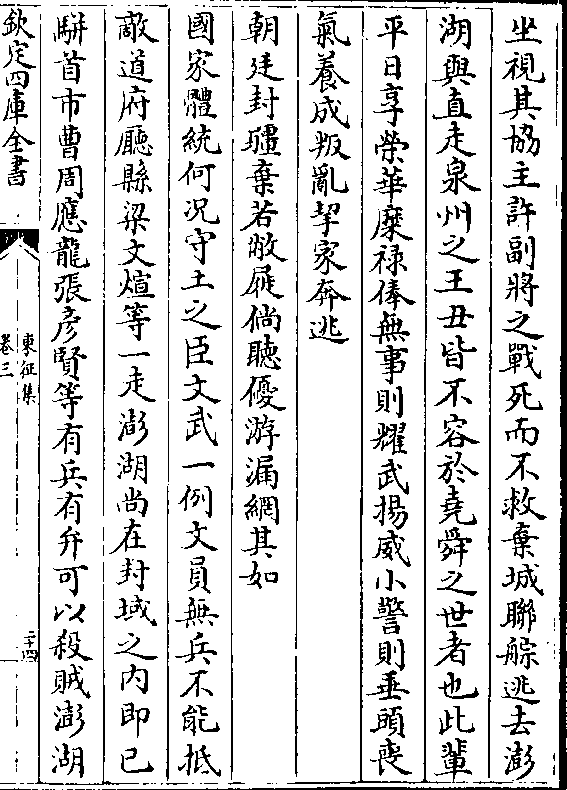 坐視其協主許副將之戰死而不救棄城聯䑸逃去澎
湖與直走泉州之王丑皆不容於堯舜之世者也此輩
平日享榮華糜祿俸無事則耀武揚威小警則垂頭喪
氣養成叛亂挈家奔逃
朝廷封疆棄若敝屣倘聽優游漏網其如
國家體統何況守土之臣文武一例文員無兵不能抵
敵道府廳縣梁文煊等一走澎湖尚在封域之内即已
駢首市曹周應龍張彦賢等有兵有弁可以殺賊澎湖
欽定四庫全書
東征集
卷三
二十四